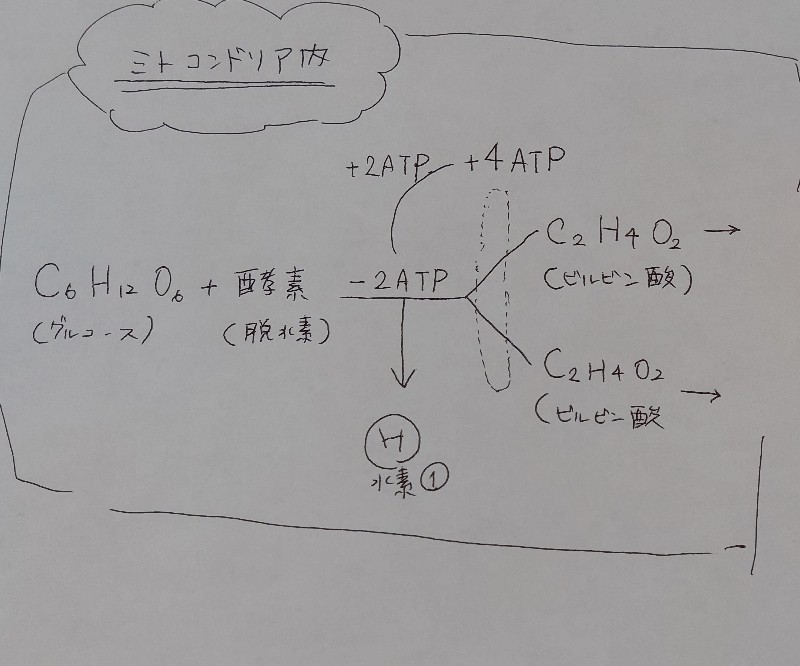 ミトコンドリア内
+2ATP +4ATP
C₂H4O₂ →
(ピルビン酸)
C₆H₁₂O₆ + 酵素 -2ATP
(グルコース) (脱水素)
C₂H4O₂ →
(ピルビン酸
H
水素①